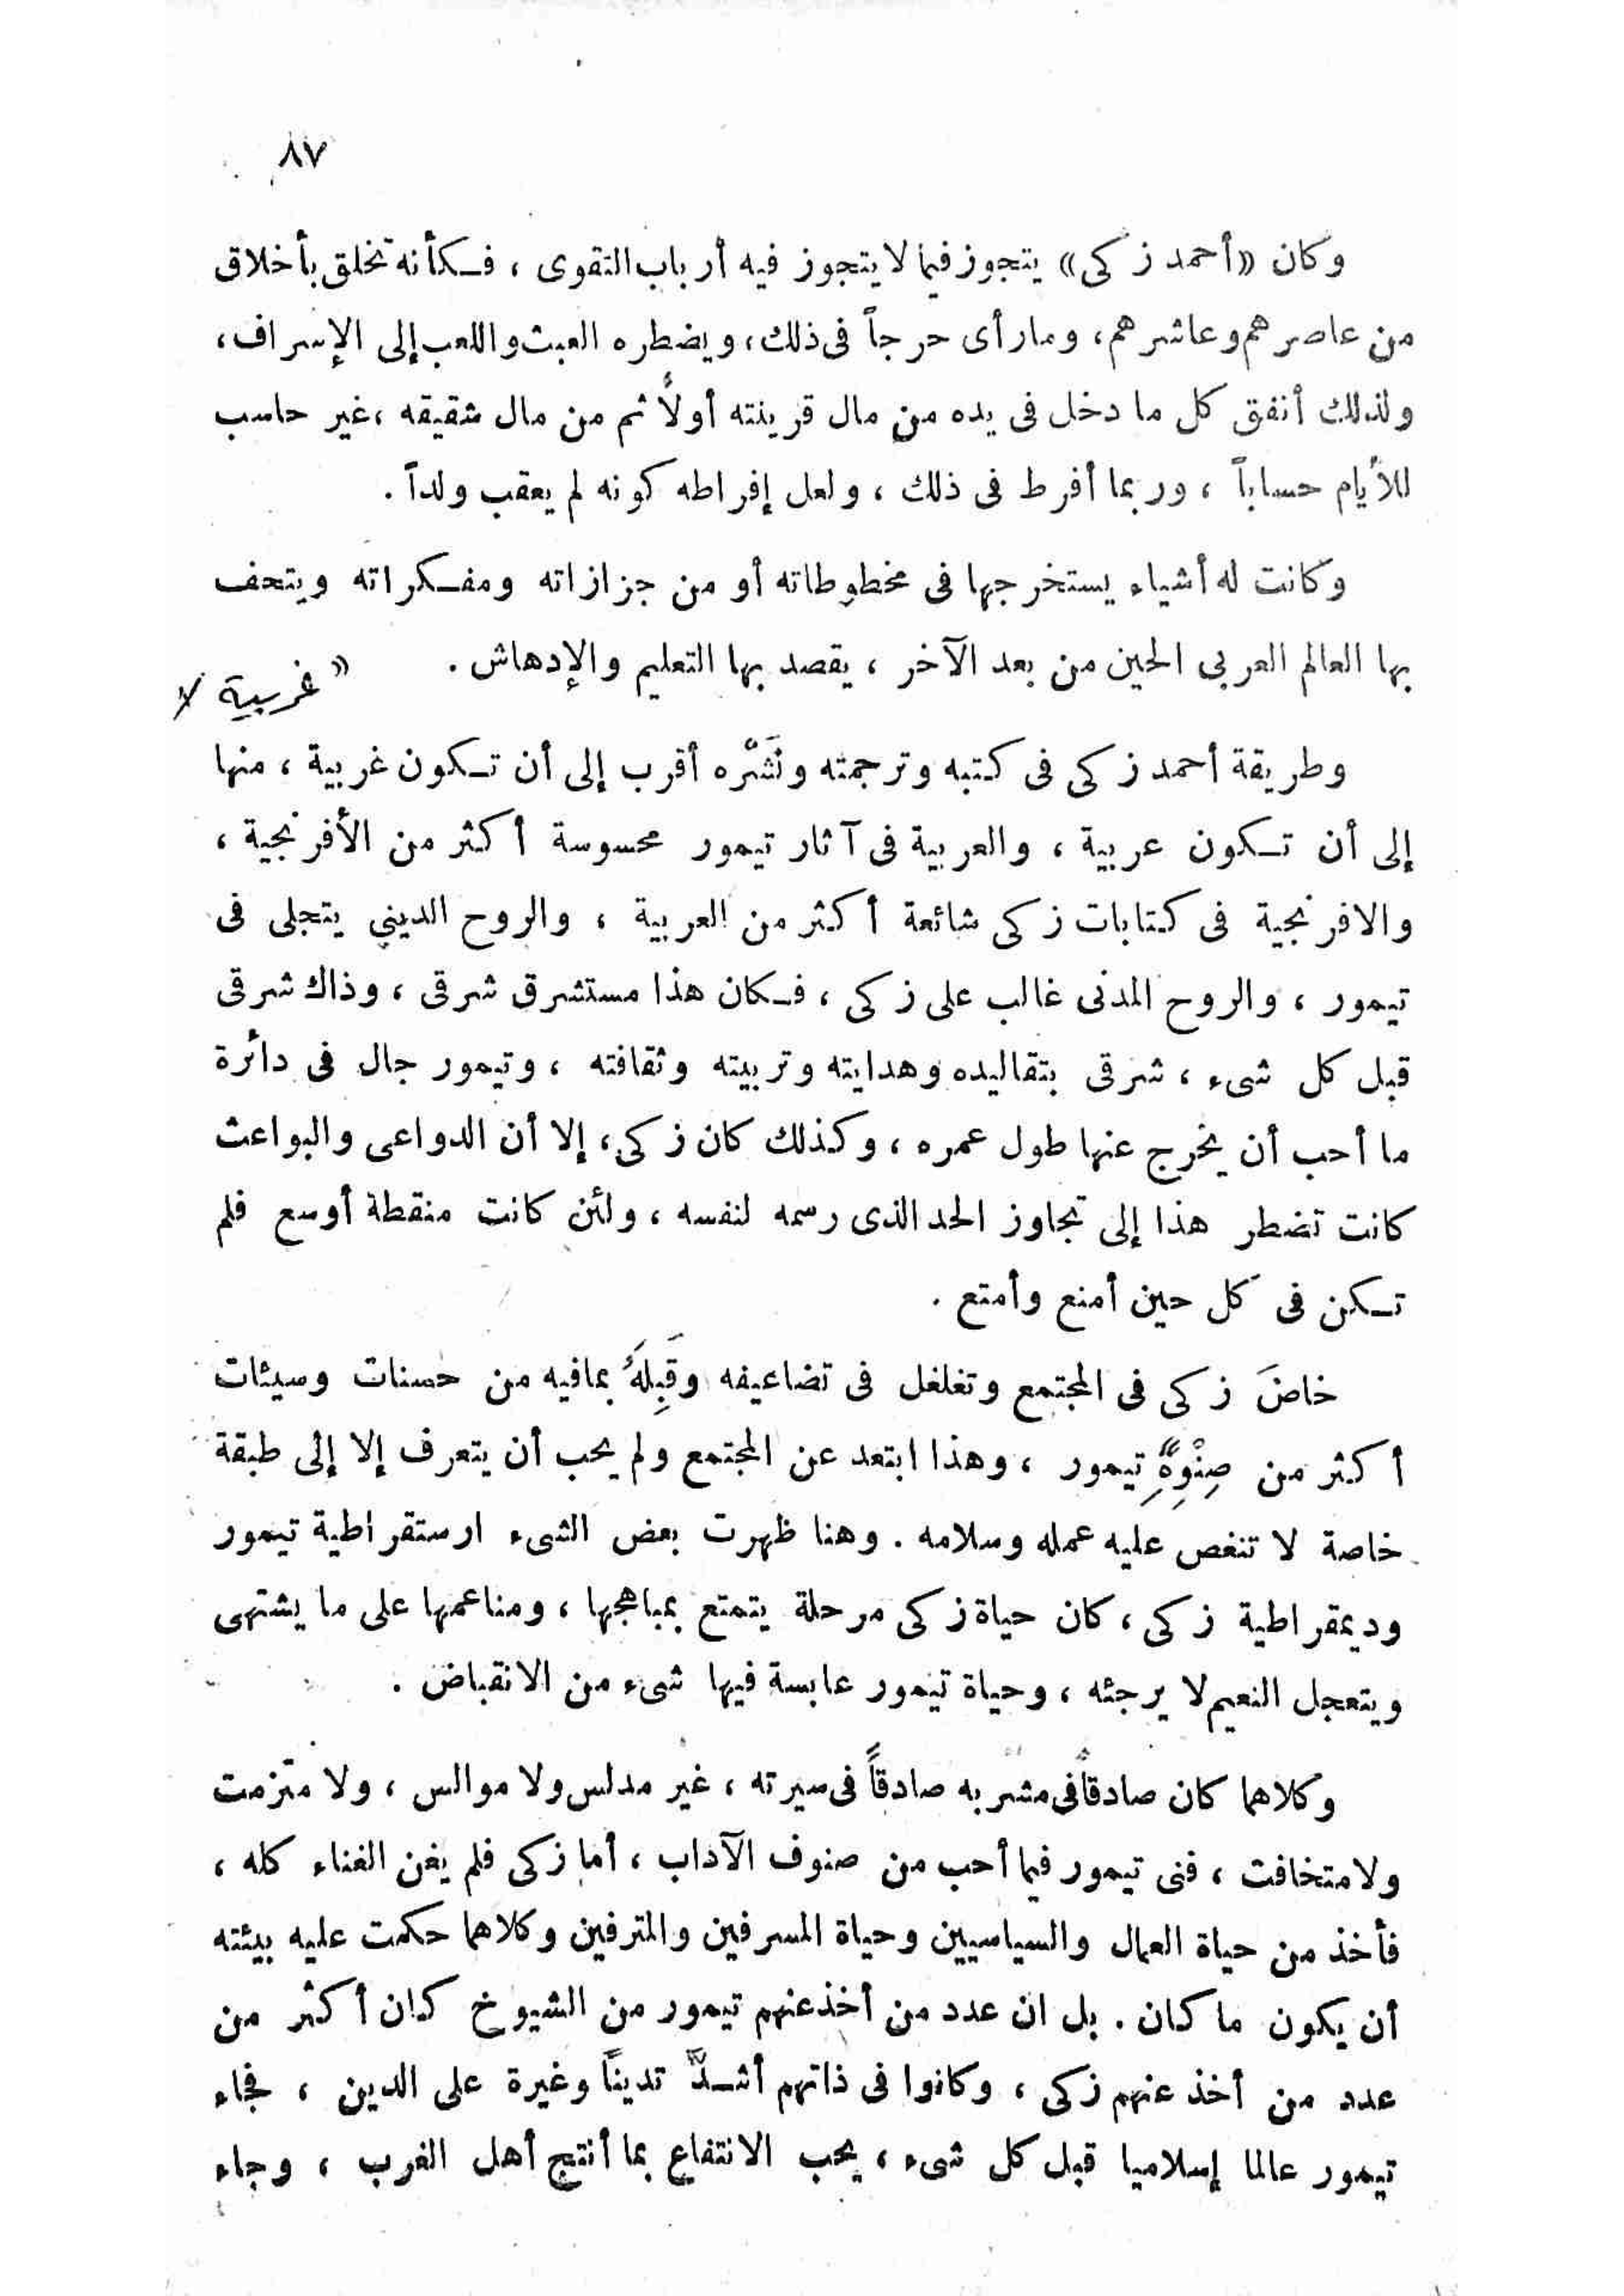 ٨٧
وكان «أحمد زكى» يتجوز فيما لا يتجوز فيه أرباب التقوى ، فكأنه تخلق بأخلاق
من عاصرهم وعاشرهم، وما رأى حرجاً فى ذلك، ويضطره العبث واللعب إلى الإسراف،
ولذلك أنفق كل ما دخل فى يده من مال قرينته أولاً ثم من مال شقيقه ، غير حاسب
للأيام حساباً ، وربما أفرط فى ذلك ، ولعل إفراطه كونه لم يعقب ولداً .
وكانت له أشياء يستخرجها فى مخطوطاته أو من جزازاته ومفكراته ويتحف
بها العالم العربى الحين من بعد الآخر ، يقصد بها التعليم والإدهاش .
» غربية لا
وطريقة أحمد زكى فى كتبه وترجمته ونَشْره أقرب إلى أن تكون غربية ، منها
إلى أن تكون عربية ، والعربية فى آثار تيمور محسوسة أكثر من الأفرنجية ،
والافرنجية فى كتابات زكى شائعة أكثر من العربية ، والروح الديني يتجلى فى
تيمور ، والروح المدنى غالب على زكى ، فكان هذا مستشرق شرقى ، وذاك شرقى
قبل كل شىء ، شرقى بتقاليده وهدايته وتربيته وثقافته ، وتيمور جال فى دائرة
ما أحب أن يخرج عنها طول عمره ، وكذلك كان زكى، إلا أن الدواعى والبواعث
كانت تضطر هذا إلى تجاوز الحد الذى رسمه لنفسه ، ولئن كانت منقطة أوسع فلم
تكن فى كل حين أمنع وأمتع .
خاضَ زكى فى المجتمع وتغلغل فى تضاعيفه وقَبِلَهُ بما فيه من حسنات وسيئات
أكثر من صِنْوِهِ تيمور ، وهذا ابتعد عن المجتمع ولم يحب أن يتعرف إلا إلى طبقة
خاصة لا تنغص عليه عمله وسلامه . وهنا ظهرت بعض الشىء ارستقراطية تيمور
وديمقراطية زكى ، كان حياة زكى مرحلة يتمتع بمباهجها ، ومناعمها على ما يشتهى
ويتعجل النعيم لا يرجئه ، وحياة تيمور عابسة فيها شىء من الانقباض .
وكلاهما كان صادقاً فى مشربه صادقاً فى سيرته ، غير مدلس ولا موالس ، ولا متزمت
ولا متخافت ، فنى تيمور فيما أحب من صنوف الآداب ، أما زكى فلم يفن الفناء كله ،
فأخذ من حياة العمال والسياسيين وحياة المسرفين والمترفين وكلاهما حكمت عليه بيئته
أن يكون ما كان . بل ان عدد من أخذ عنهم تيمور من الشيوخ كان أكثر من
عدد من أخذ عنهم زكى ، وكانوا فى ذاتهم أشدَّ تديناً وغيرة على الدين ، فجاء
تيمور عالما إسلاميا قبل كل شىء ، يحب الانتفاع بما أنتج أهل الغرب ، وجاء